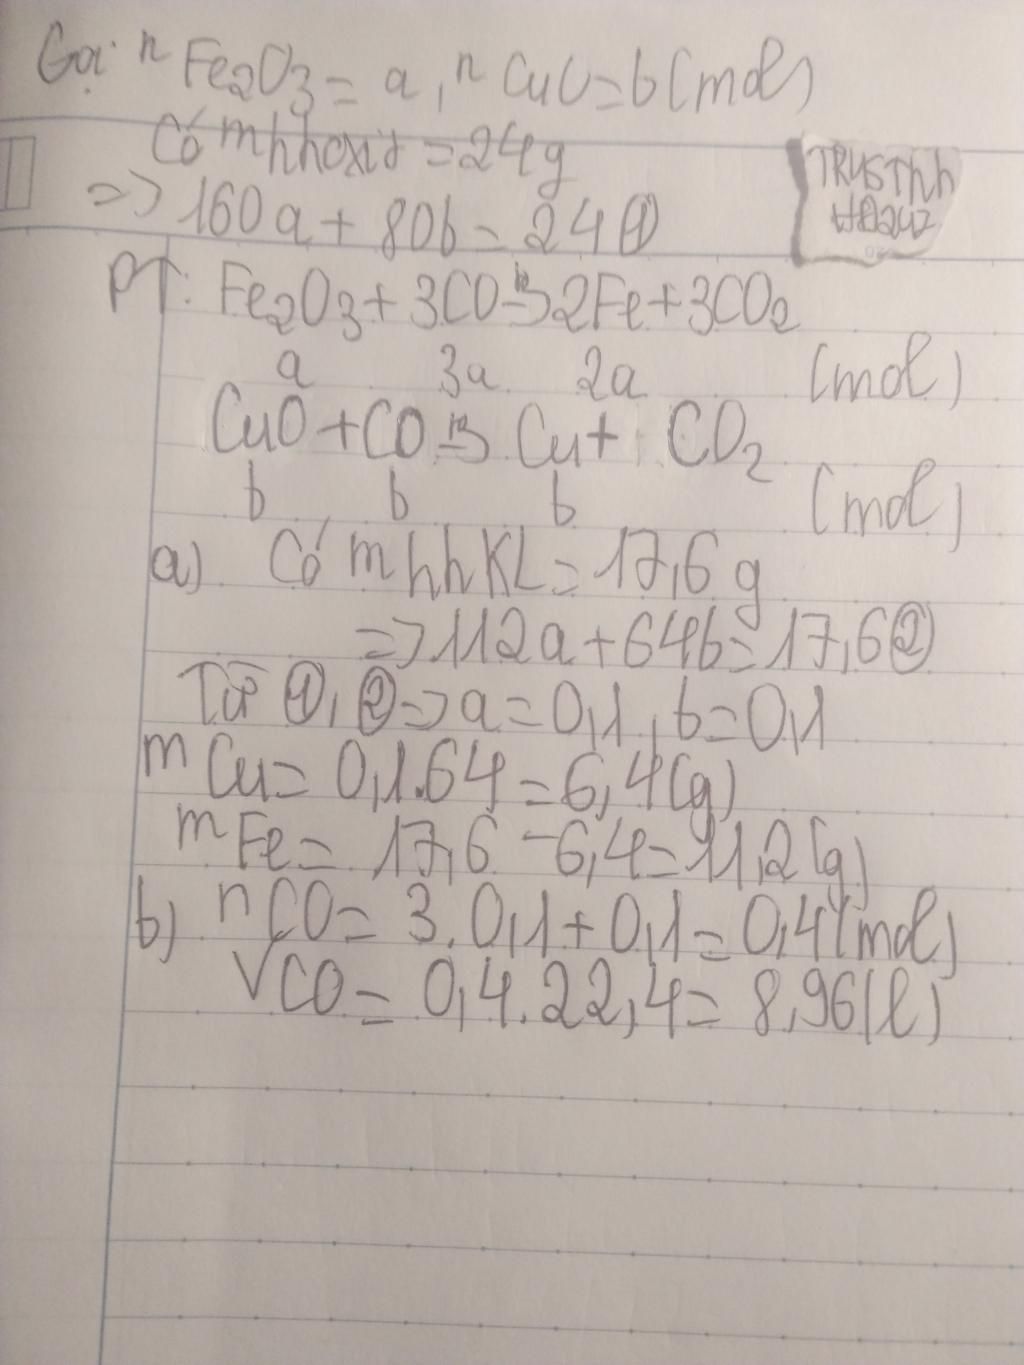 Gọi n Fe2O3 = a, n CuO = b (mol)
Có m hh oxit = 24g
=> 160a + 80b = 24 ①
TRUSThh
PT: Fe2O3 + 3CO -t°-> 2Fe + 3CO2
a 3a 2a (mol)
CuO + CO -t°-> Cu + CO2
b b b (mol)
a) Có m hh KL = 17,6 g
=> 112a + 64b = 17,6 ②
Từ ①, ② => a = 0,1, b = 0,1
m Cu = 0,1.64 = 6,4 (g)
m Fe = 17,6 - 6,4 = 11,2 (g)
b) n CO = 3.0,1 + 0,1 = 0,4 (mol)
V CO = 0,4.22,4 = 8,96 (l)